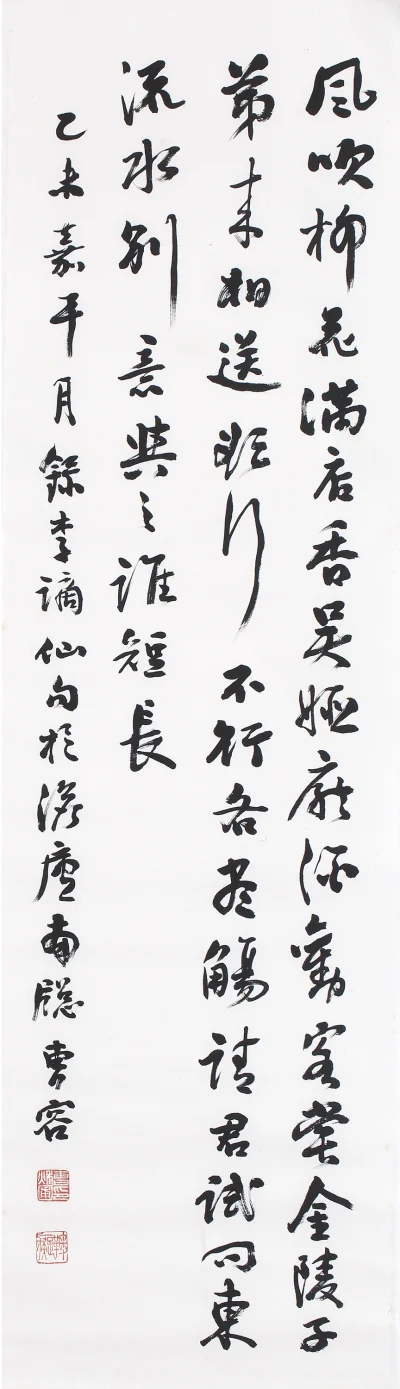 風吹柳花滿店香吳姬壓酒勸客嘗金陵子
弟來相送欲行不行各盡觴請君試問東
流水別意與之誰短長
乙未嘉平月錄李謫仙句於澹廬南牕曹容